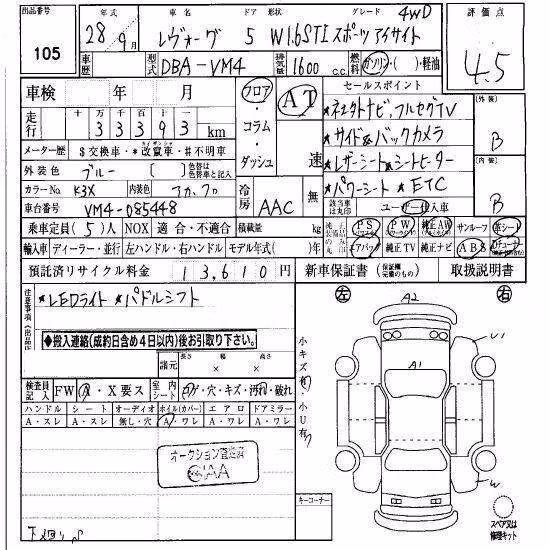 出品番号 年式 車名 ドア 形状 グレード 評価点
105 28年9月 レヴォーグ 5 W 1.6STIスポーツアイサイト 4WD 4.5
車歴 型式 DBA-VM4 排気量 1600 c.c. 燃料 ガソリン・( )・軽油
車検 年 月 フロア・コラム・ダッシュ AT 速 セールスポイント 外装 B
走行 十 万 千 百 十 一
3 3 3 9 3 km
*ネオタトナビ,フルセグTV
*サイド&バックカメラ
メーター歴 $交換車・*改竄車・#不明車
*レザーシート*シートヒーター 内装 B
外装色 ブルー [ ] 色替は色替車と記入
*パワーシート *ETC
カラーNo K3X 内装色 アカ,クロ 冷房 AAC 無
該当車は丸印 ユーザー仕入車
車台番号 VM4-085448
乗車定員 (5)人 NOX 適合・不適合 積載量 kg
PS PW 純正AW サンルーフ 革シート
輸入車 ディーラー・並行 左ハンドル・右ハンドル モデル年式( )年
エアバッグ 純正TV 純正ナビ ABS
預託済リサイクル料金 13,610円 新車保証書 (保証欄完備のもの) 取扱説明書
注意事項(出品店)
*LEDライト *パドルシフト
左 右
A2
◆搬入連絡(成約日含め4日以内)後お引取り下さい。◆
諸元 長さ × 幅 × 高さ
A1
小キズ有り・小U有り
検査員記入 FW A・X要ス 室内シート コゲ・穴・キズ・汚れ・破れ
ハンドル シート オーディオ ホイル(カバー) エアロ ドアミラー
A・スレ A・スレ 無し・穴 A・ワレ A・ワレ A・ワレ
オークション査定済
CIAA
W
キーコーナー
下廻りS
スペア又は修理キット